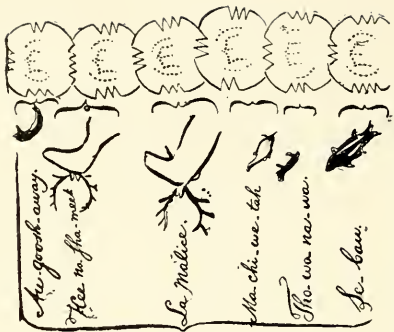 Au-goosh-away.
Kee-no-sha-meek
La Malice.
Ma-chi-we-tah
Tho-wa na-wa.
Se-baw.